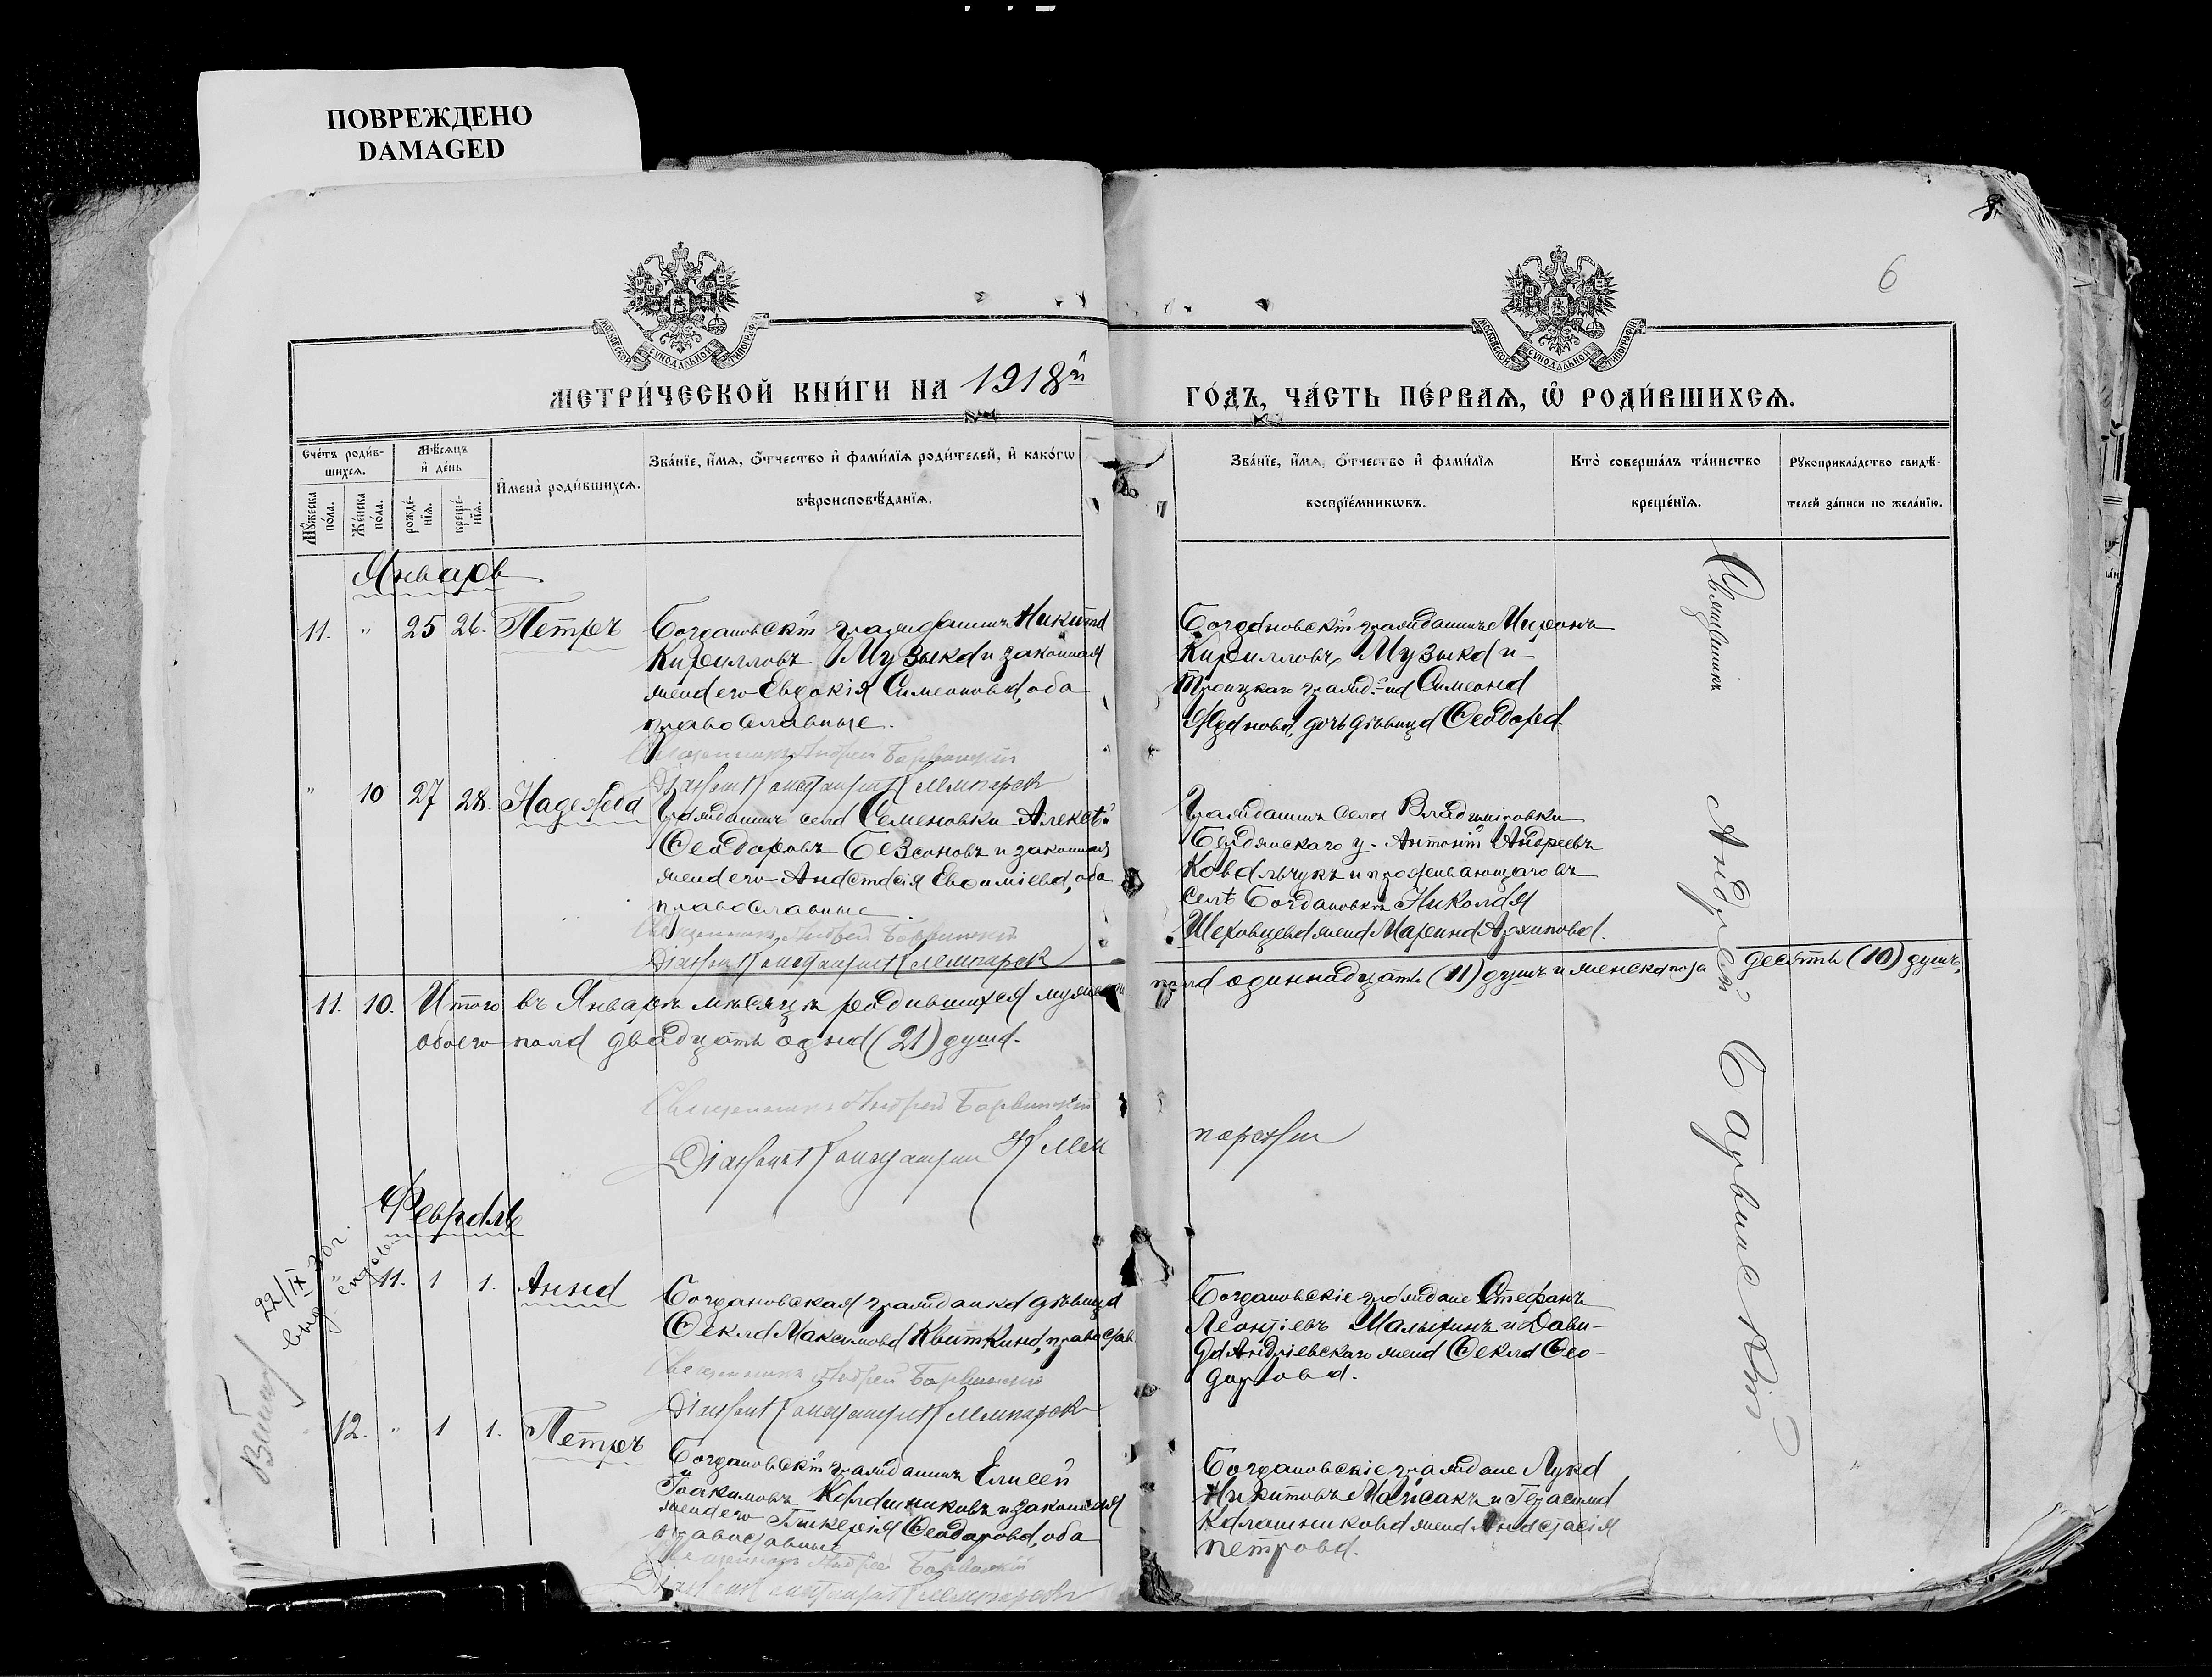 ПОВРЕЖДЕНО
DAMAGED
8
6
МОСКОВСКОЙ СУНОДАЛЬНОЙ ТИПОГРАФІИ
МОСКОВСКОЙ СУНОДАЛЬНОЙ ТИПОГРАФІИ
МЕТРИ́ЧЕСКОЙ КНИ́ГИ НА 1918й
ГО́ДЪ, ЧА́СТЬ ПЕ́РВАѦ, Ѡ҆ РОДИ́ВШИХСѦ.
Сче́тъ роди́в-
шихсѧ.
Мꙋ́жеска по́ла.
Же́нска по́ла.
Мѣ́сѧцъ и҆ де́нь
рожде́-нїѧ.
креще́-нїѧ.
И҆мена̀ роди́вшихсѧ.
Зва́нїе, и҆́мѧ, ѻ҆́тчество и҆ фами́лїѧ роди́телей, и҆ како́гѡ
вѣроисповѣ́данїѧ.
Зва́нїе, и҆́мѧ, ѻ҆́тчество и҆ фами́лїѧ
воспрїе́мникѡвъ.
Кто̀ соверша́лъ та́инство
креще́нїѧ.
Рꙋкоприкла́дство свидѣ́-
телей за́писи по жела́нїю.
Январь
11. " 25 26. Петръ Богдановскій гражданинъ Никита
Кирилловъ Музыка и законная
жена его Евдокія Симеонова, оба
православные.
Священникъ Андрей Барвинскій
Діаконъ Константинъ Клемпарскій
Богдановскій гражданинъ Миронъ
Кирилловъ Музыка и
Троицкаго гражд-на Симеона
дочь дѣвица Ѳеодора.
" 10 27 28. Надежда Гражданинъ села Семеновки Алексѣй
Ѳеодоровъ Безсоновъ и законная
жена его Анастасія Евѳиміева, оба
православные.
Священникъ Андрей Барвинскій
Діаконъ Константинъ Клемпарскій
Гражданинъ села Владиміровки
Бердянскаго у. Антоній Андреевъ
Ковальчукъ и проживающаго въ
селѣ Богдановкѣ Николая
Шеховцева жена Марина Архипова.
11. 10. Итого въ Январѣ мѣсяцѣ родившихся мужеска
пола одиннадцать (11) душъ и женска пола десять (10) душъ,
обоего пола двадцать одна (21) душа.
Священникъ Андрей Барвинскій
Діаконъ Константинъ Клемпарскій
Февраль
22/IX
" 11. 1 1. Анна Богдановская гражданка дѣвица
Ѳекла Максимова Квиткина, правосл.
Священникъ Андрей Барвинскій
Діаконъ Константинъ Клемпарскій
Богдановскіе граждане Стефанъ
Леонтіевъ Малыхинъ и Дави-
да Андріевскаго жена Ѳекла Ѳео-
дорова.
12. " 1 1. Петръ Богдановскій гражданинъ Елисей
Іоакимовъ Калашниковъ и законная
жена его Гликерія Ѳеодорова, оба
православные
Священникъ Андрей Барвинскій
Діаконъ Константинъ Клемпарскій
Богдановскіе граждане Лука
Никитовъ Майсакъ и Герасима
Калашникова жена Анастасія
Петрова.
Священникъ Андрей Барвинскій